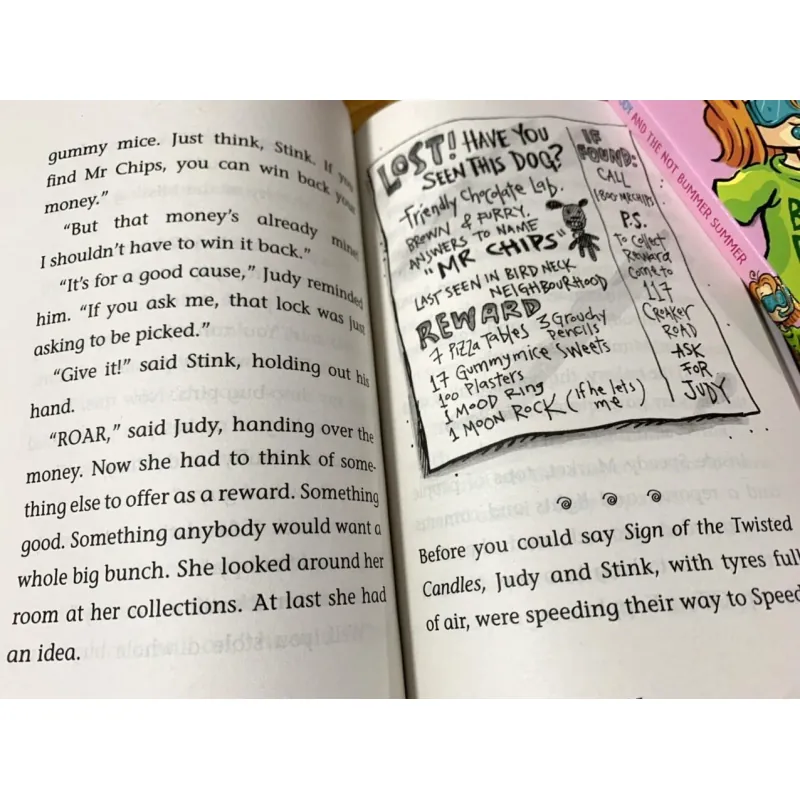 gummy mice. Just think, Stink. If you
find Mr Chips, you can win back your
money.”
“But that money’s already mine!
I shouldn’t have to win it back.”
“It’s for a good cause,” Judy reminded
him. “If you ask me, that lock was just
asking to be picked.”
“Give it!” said Stink, holding out his
hand.
“ROAR,” said Judy, handing over the
money. Now she had to think of some-
thing else to offer as a reward. Something
good. Something anybody would want a
whole big bunch. She looked around her
room at her collections. At last she had
an idea.
LOST! HAVE YOU
SEEN THIS DOG?
Friendly Chocolate Lab.
BROWN & FURRY.
ANSWERS TO NAME
"MR CHIPS"
LAST SEEN IN BIRD NECK
NEIGHBOURHOOD
REWARD
7 Pizza Tables 3 Grouchy
Pencils
17 Gummy mice Sweets
100 Plasters
1 MOOD Ring
1 MOON ROCK (if he lets)
me
IF
FOUND:
CALL
1800 MRCHIPS
P.S.
To Collect
Reward
Come to
117
CROAKER
ROAD
ASK
FOR
JUDY
Before you could say Sign of the Twisted
Candles, Judy and Stink, with tyres full
of air, were speeding their way to Speed
AND THE NOT BUMMER SUMMER